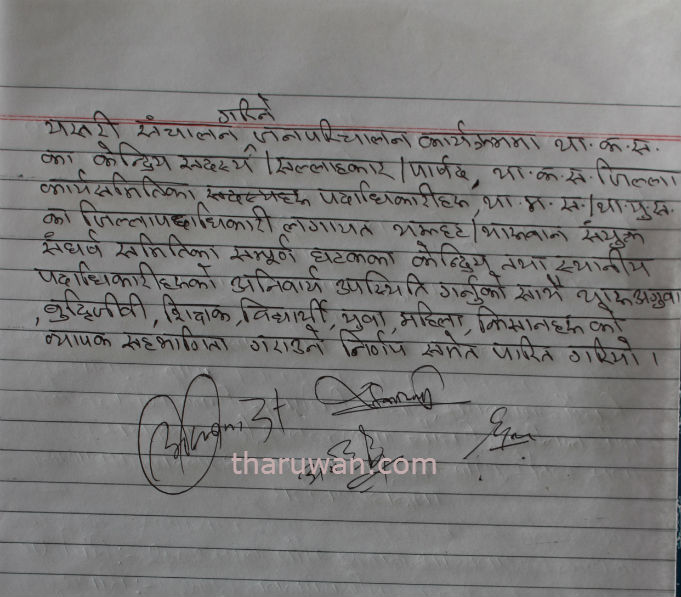 गरिने
यसरी संचालन जनपरिचालन कार्यक्रममा था.क.स.
का केन्द्रिय सदस्य/सल्लाहकार/पार्षद, था.क.स. जिल्ला
कार्यसमितिका सदस्यहरू पदाधिकारीहरू, था.म.स./था.यु.स.
का जिल्ला पदाधिकारी लगायत थरुहट/थारुवान संयुक्त
संघर्ष समितिका सम्पूर्ण घटकका केन्द्रिय तथा स्थानीय
पदाधिकारीहरूको अनिवार्य उपस्थिति गर्नुको साथै थारू अगुवा
, बुद्धिजीवी, शिक्षक, विद्यार्थी, युवा, महिला, किसानहरू को
व्यापक सहभागिता गराउने निर्णय समेत पारित गरियो।
tharuwan.com